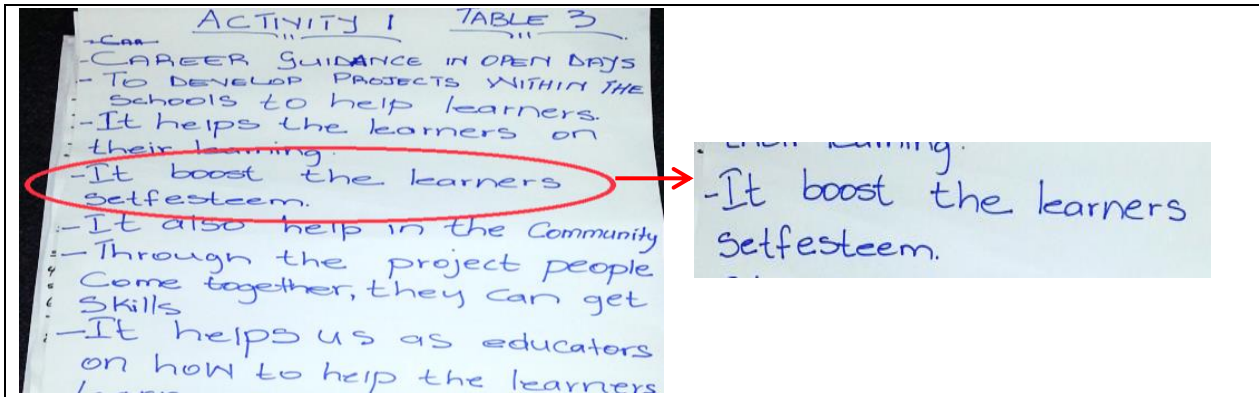 ACTIVITY 1 TABLE 3
- CAREER GUIDANCE IN OPEN DAYS
- TO DEVELOP PROJECTS WITHIN THE
schools to help learners.
- It helps the learners on
their learning.
- It boost the learners
setfesteem.
- It also help in the Community
- Through the project people
Come together, they can get
Skills
- It helps us as educators
on how to help the learners
their learning.
- It boost the learners
setfesteem.